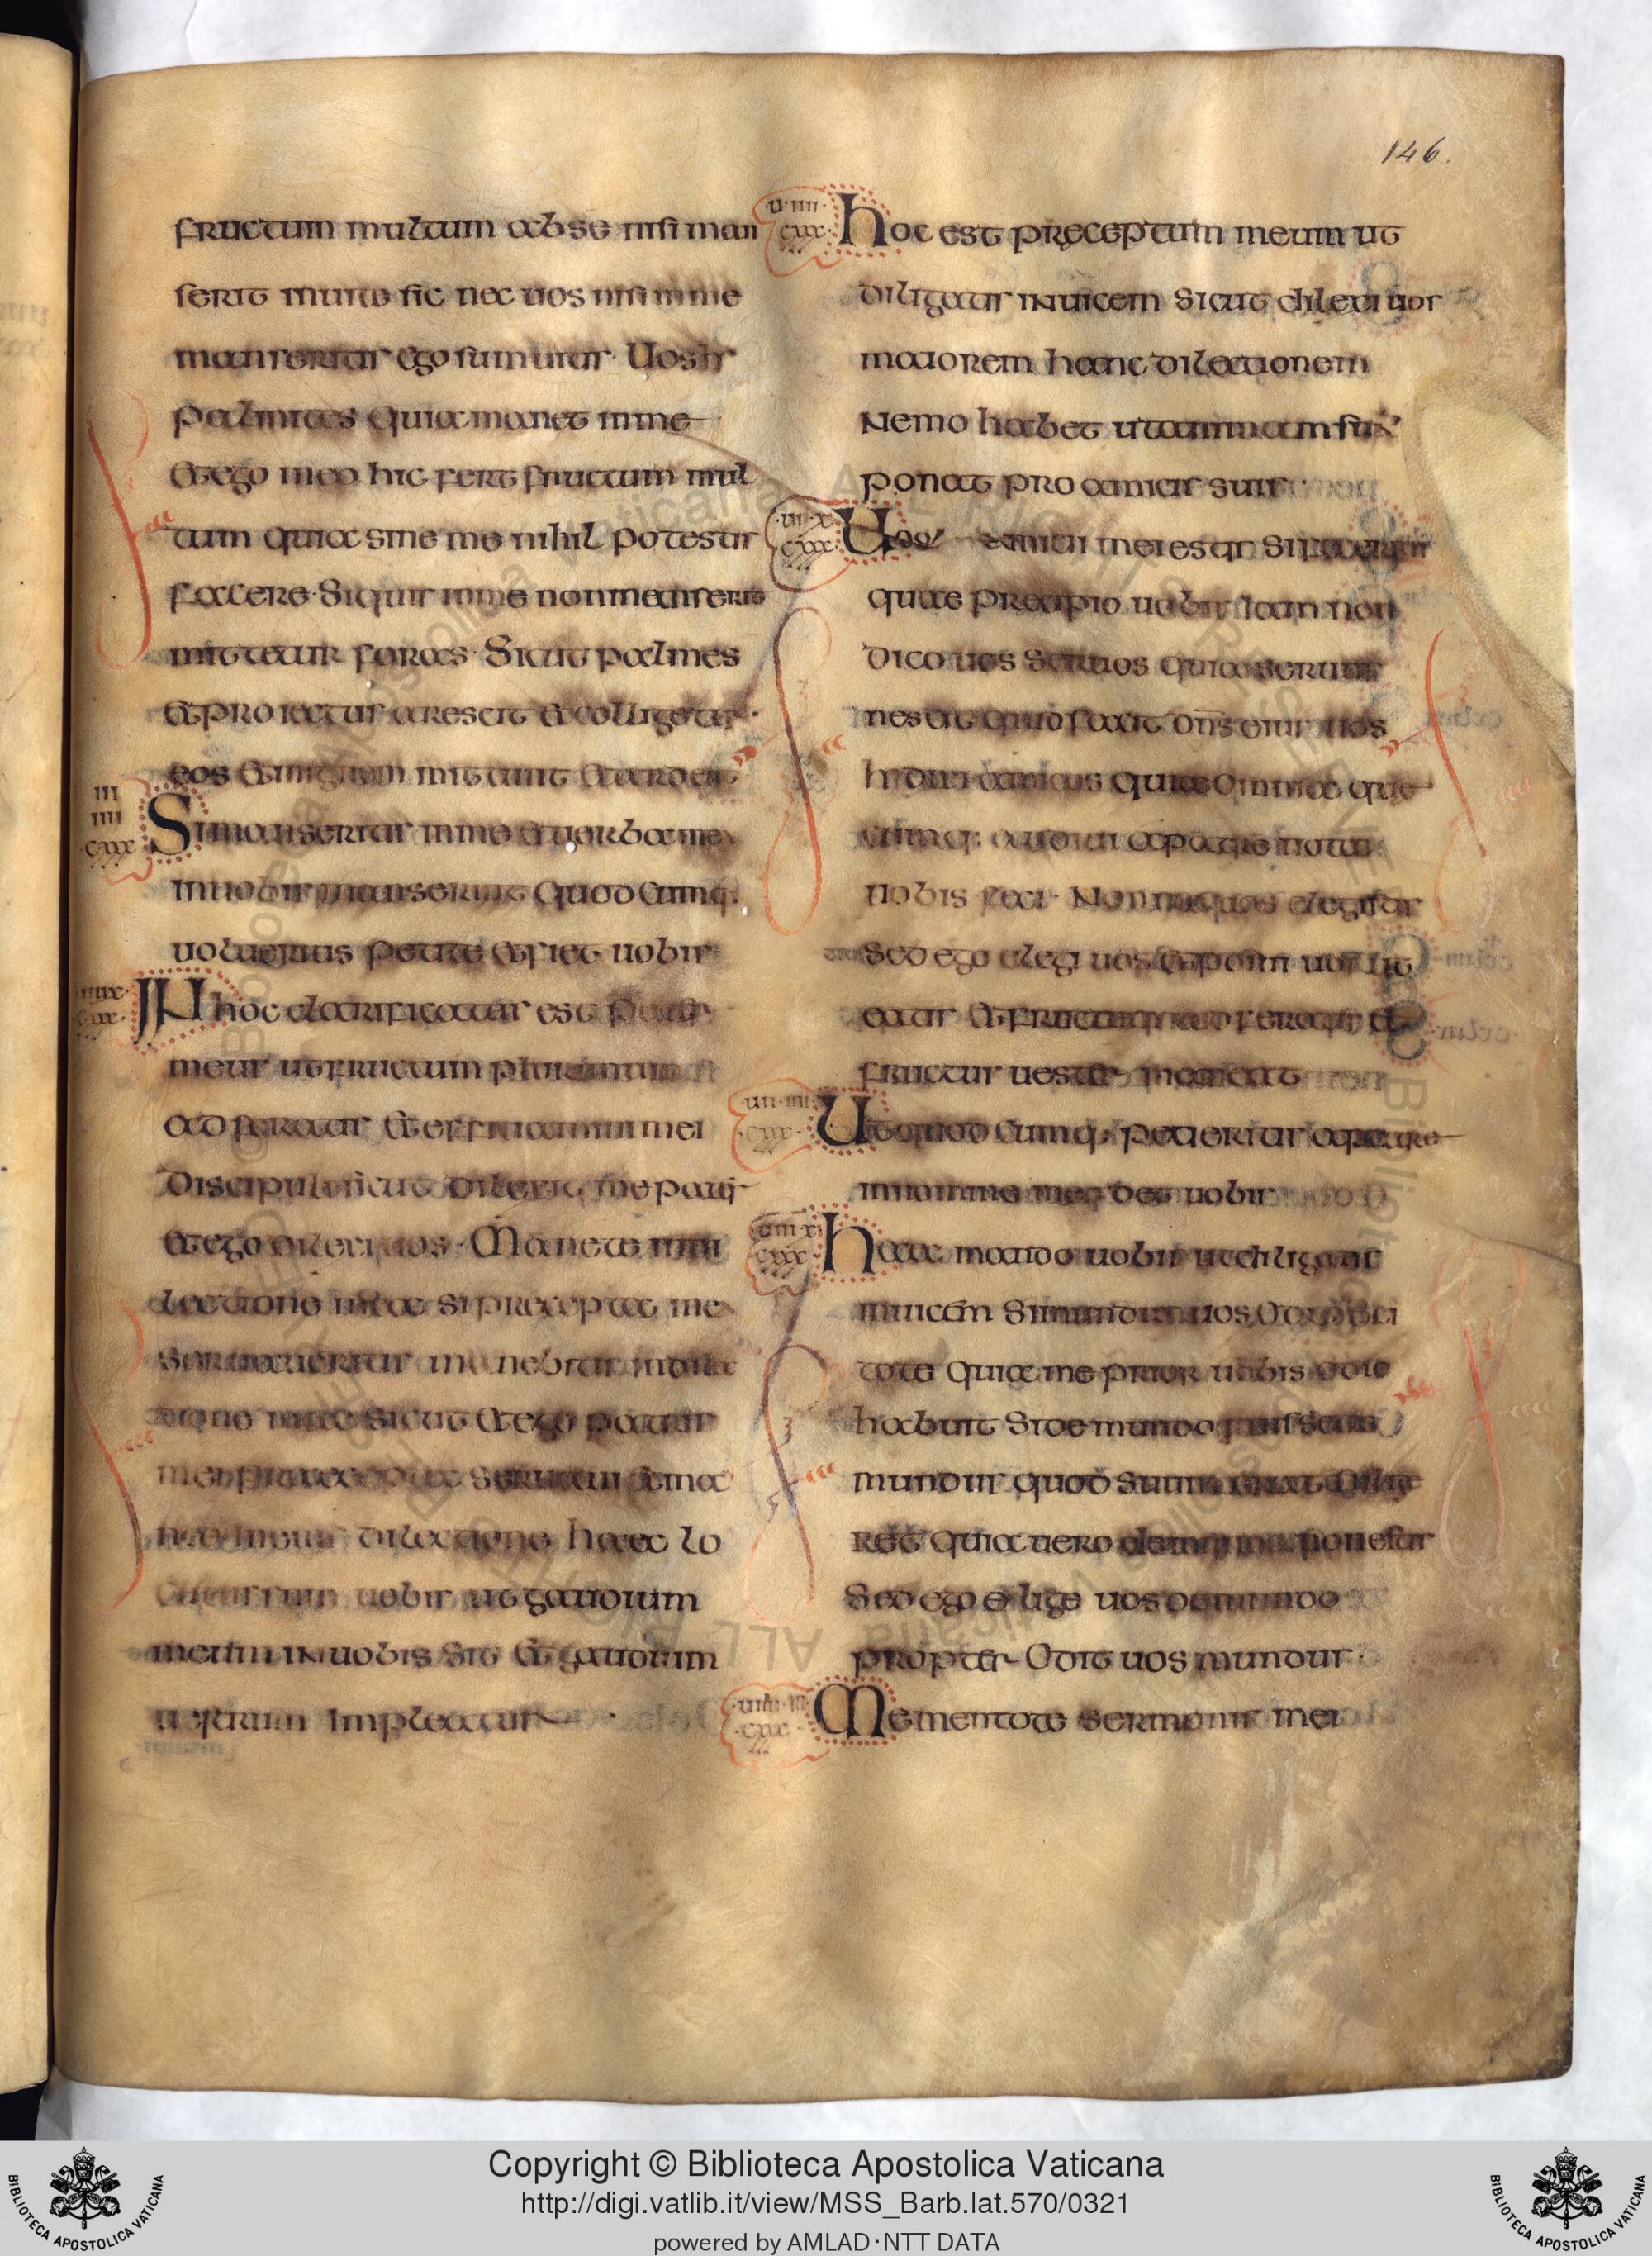 146.
fructum multum ab se nisi man
serit in uite sic nec uos nisi in me
manseritis ego sum uitis Uos
palmites quia manet in me
et ego in eo hic fert fructum mul
tum quia sine me nihil potestis
facere Si quis in me non manserit
mittetur foras Sicut palmes
et proiectus arescit et colligetis
eos et in ignem mittunt et ardent
iii
iiii
cxxx
Si manseritis in me et uerba mea
in uobis manserint quodcumq:
uolueritis petite et fiet uobis
IN hoc clarificatus est pater
meus ut fructum plurimum
adferatis et efficiamini mei
discipuli sicut dilexit me pater
et ego dilexi uos Manete in di
lectione mea Si precepta mea
seruaueritis manebitis in dilec
tione mea Sicut et ego patris
mei precepta seruaui et ma
dilectione haec lo
cutus sum uobis ut gaudium
meum in uobis sit et gaudium
uestrum impleatur
u iiii
cxxx
hoc est preceptum meum ut
diligatis inuicem Sicut dilexi uos
maiorem hanc dilectionem
Nemo habet ut animam suam
ponat pro amicis suis
iii x
cxxx
Uos amici mei estis Si
quae precipio uobis Iam non
dico uos seruos quia seruus
nescit quid facit dns eius uos
h dixi amicos quia omnia que
cumq: audiui a patre nota
uobis feci Non me uos elegistis
Sed ego elegi uos et posui uos ut
eatis et fructum
fructus uester maneat
cxxx
Ut quodcumq; petieritis a patre
in nomine meo det uobis
uiii x
cxxx
haec mando uobis ut diligatis
inuicem Si mundus uos odit
tote quia me prior uobis odio
habuit Si de mundo fuissetis
mundus quod suum erat dilige
ret quia uero de mundo non estis
Sed ego elige uos de mundo
propter Odit uos mundus
cxxx
Mementote sermonis mei
Copyright © Biblioteca Apostolica Vaticana
http://digi.vatlib.it/view/MSS_Barb.lat.570/0321
powered by AMLAD·NTT DATA
BIBLIOTECA APOSTOLICA VATICANA
BIBLIOTECA APOSTOLICA VATICANA